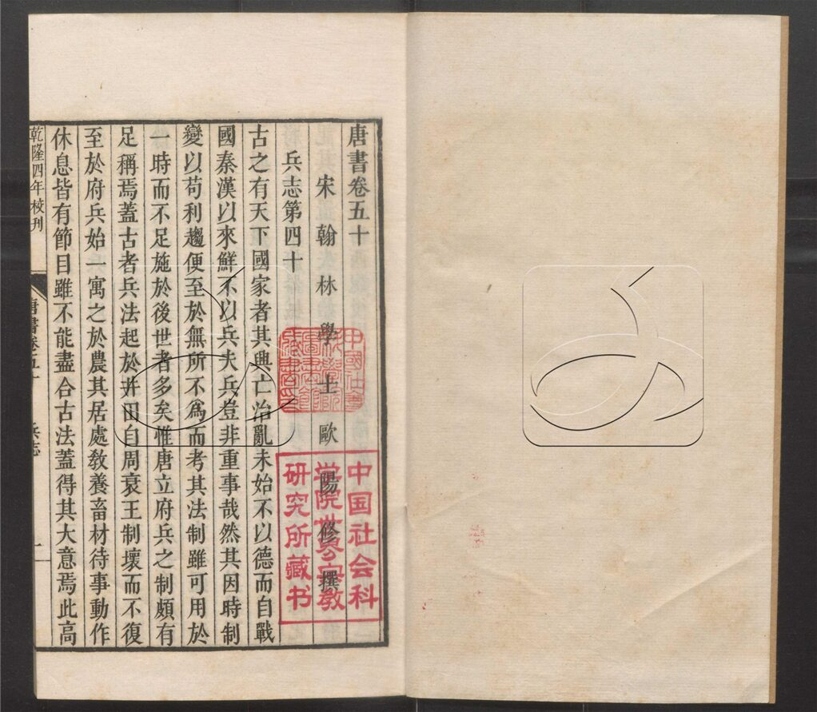 唐書卷五十
宋翰林學士歐陽修撰
兵志第四十
古之有天下國家者其興亡治亂未始不以德而自戰
國秦漢以來鮮不以兵夫兵豈非重事哉然其因時制
變以苟利趨便至於無所不為而考其法制雖可用於
一時而不足施於後世者多矣惟唐立府兵之制頗有
足稱焉蓋古者兵法起於井田自周衰王制壞而不復
至於府兵始一寓之於農其居處教養畜材待事動作
休息皆有節目雖不能盡合古法蓋得其大意焉此高
乾隆四年校刊
唐書卷五十 兵志 一
中国社会科
学院世界宗教
研究所藏书